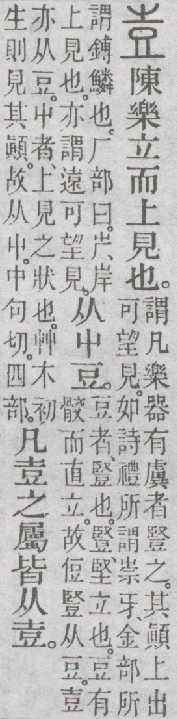 壴 陳樂立而上見也。
謂凡樂器有虡者豎之。其顚上出
可望見。如詩禮所謂崇牙、金部所
謂鎛鱗也。厂部曰。屵岸
上見也。亦謂遠可望見。
从屮豆。
豆者、豎也。豎、堅立也。豆有
骰而直立。故侸豎从豆。壴
亦从豆。屮者、上見之狀也。艸木初
生則見其顚。故从屮。中句切。四部。
凡壴之屬皆从壴。